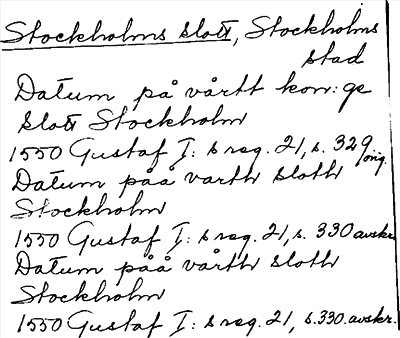 Stockholms slott, Stockholms
stad
Datum på vårtt kon: ge
slott Stockholm
1550 Gustaf I: s reg. 21, s. 329 orig.
Datum påå varth sloth
Stockholm
1550 Gustaf I: s reg. 21, s. 330 avskr.
Datum påå vårth sloth
Stockholm
1550 Gustaf I: s reg. 21, s. 330. avskr.